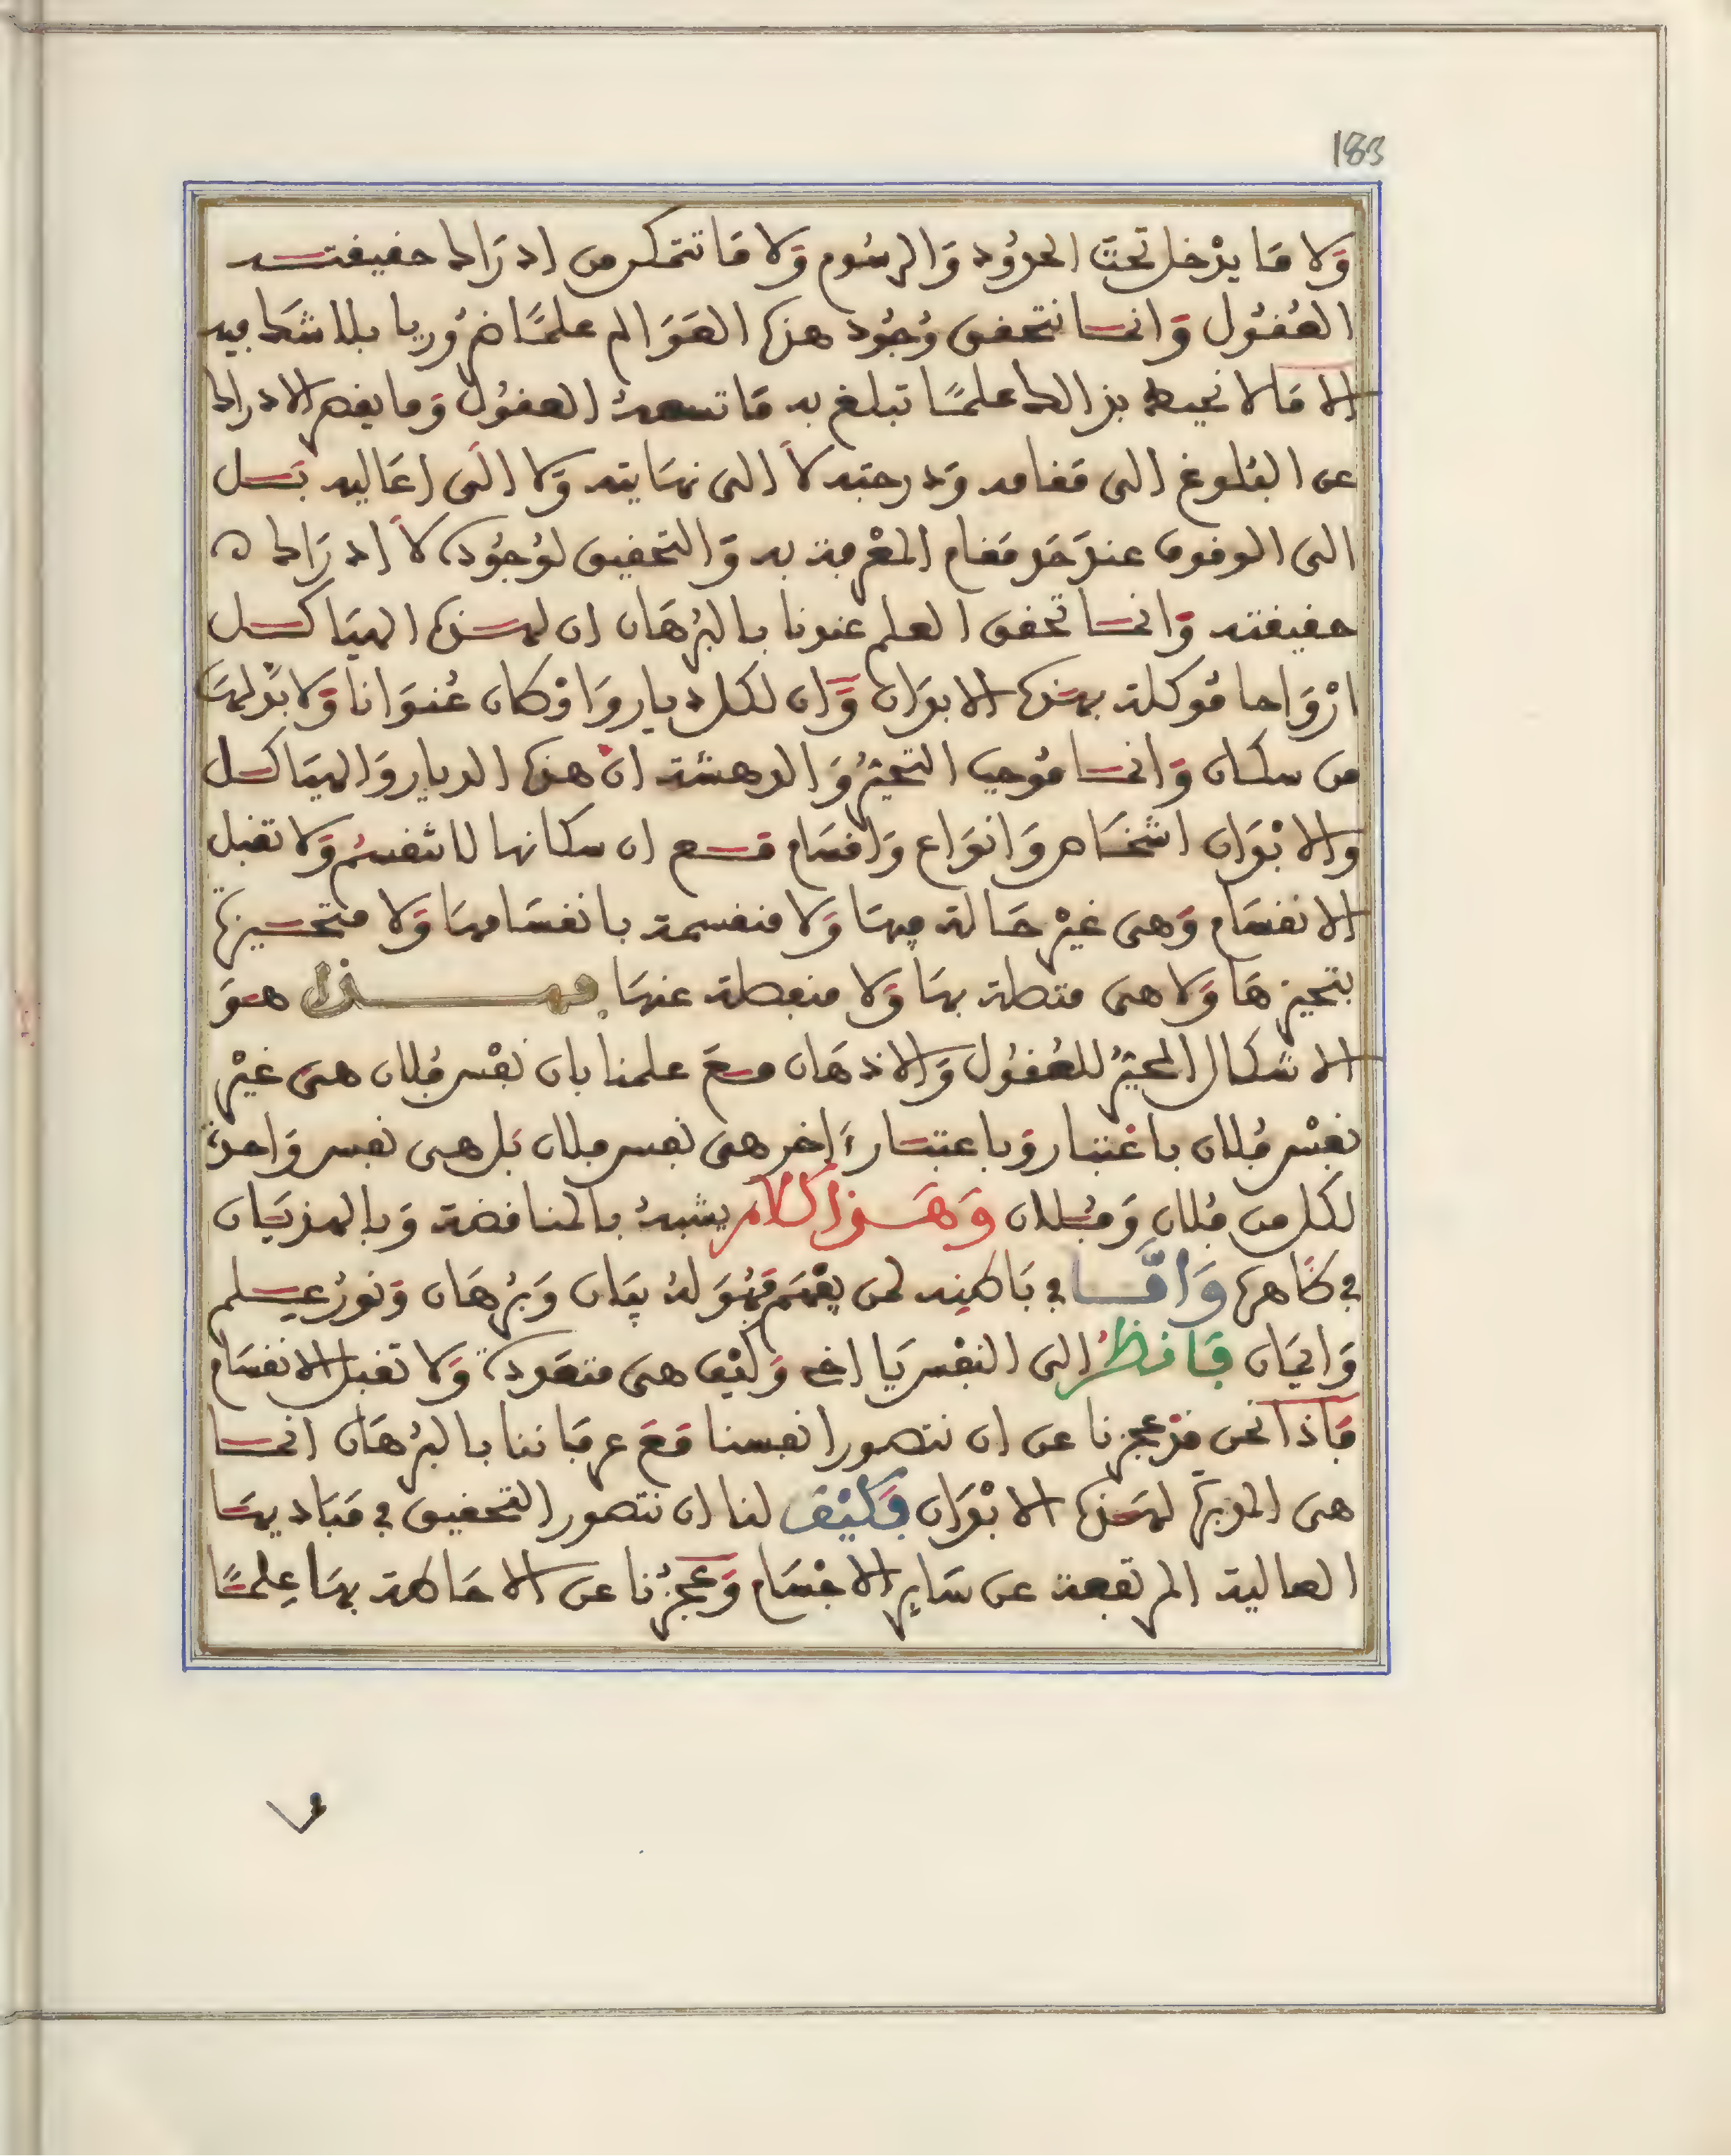 183
وَلا مَا يدْخل تحتَ الحدُود وَالرسُوم وَلا مَا تتمكن من ادرَاك حقيقتـــه
العُقُول وَانمـا نتحقق وُجُود هذه العَوَالم علمًا ضرُوريا بلا شك فيه
الا مَا لا نحيط بذالك علمًا تبلغ به مَا تسعهُ العقُول وَما يقصر الادراك
عن البُلوغ الى مَقامه وَدرجته لاَ الى نهَايته وَلا الَى اعَاليه بَـل
الى الوقوف عندَ حَد مَقام المعْرفة به وَالتحقيق لوُجُوده لاَ ادرَاك
حقيقته وَانمـا تحقق العلم عندنا بالبُرْهَان ان لهـذه الهيَاكـل
ارْوَاحا مُوكلة بهَذه الابدَان وَان لكل ديار وَاوْكان عُنوَانا وَلا بُد لهَا
من سكان وَانمـا مُوجب التحيُّر وَالدهشة انَّ هذه الديار وَالهيَاكـل
وَالابْدَان اشخَاص وَانوَاع وَاقسَام مَـع ان سكانها لا تنقسمُ وَلا تقبل
الانقسَام وَهى غيْر حَالة فيهَا وَلا منقسمة بانقسَامهَا وَلا متحـيزة
بتحيزهَا وَلا هى متصلة بهَا وَلا منفصلة عنهَا فهـــذا هـوَ
الاشكال المحيّرُ للعُقُول وَالاذهَان مـعَ علمنا بان نفْس فُلان هى غيْر
نفسْ فُلان باعْتبار وَباعتبَـار ءَاخر هى نفس فلان بَل هى نفس وَاحدة
لكل من فُلان وَفُـلان وَهَـذا الكلام يشبهُ بالمناقضة وَبالهذيَان
في ظَاهره وَامَّـا في بَاطنِه لمن يفْهَم فهُوَ لهُ بيَان وَبُرْهَان وَنورُ عِـلم
وَايمَان فَانظُرْ الى النفْس يَا اخى وَكيْف هى متعَددة وَلا تقبل الانقسَام
فَاذا نحن قدْ عجزنا عن ان نتصور انفسنا مَعَ عرفَاننا بالبُرْهَان انمـا
هى المدبرَة لهَذه الابْدَان فَكيْفَ لنا ان نتصور التحقيق في مَبَاديهَا
العالية المرتفعة عن سَايِر الاجْسَام وَعجْزُنا عن الاحَاطة بهَا عِلمًـا